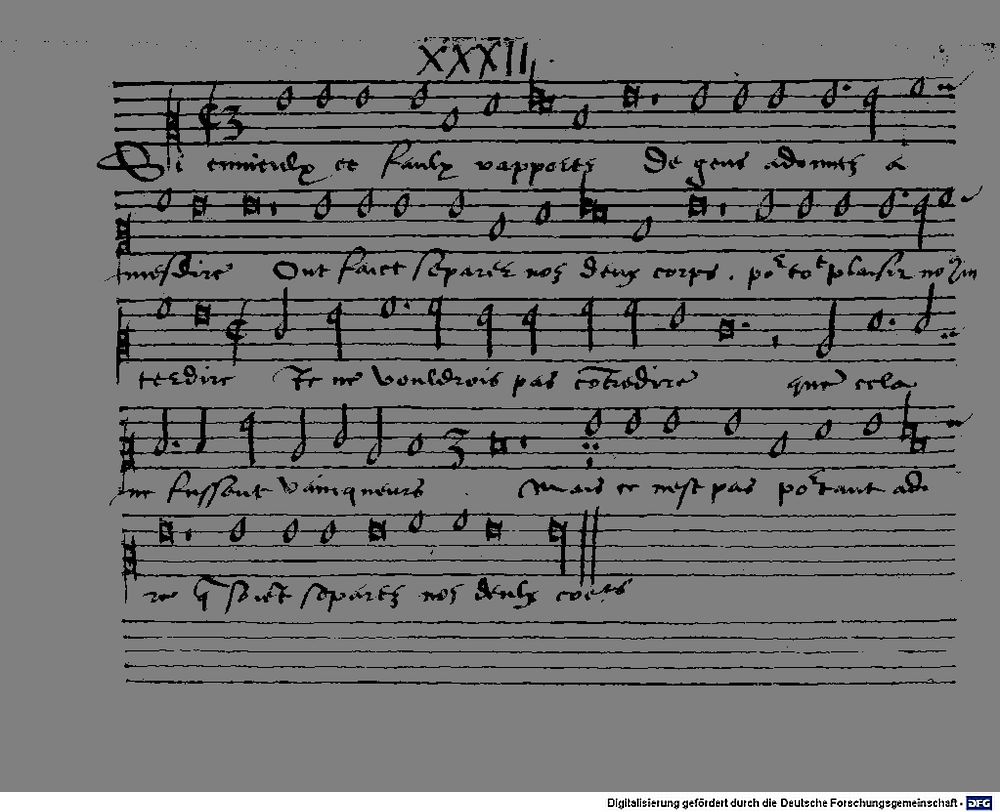 XXXII
Si envieulx et faulx rapportz De gens adonnez a
mesdire Ont faict separez noz deux corps. po^r to^t plaisir no9 in
terdire Je ne vouldrois pas cōtredire que cela
ne fussent vainqueurs . Mais ce nest pas po^rtant a di
re q̄ soiēt separez noz deulx coers
Digitalisierung gefördert durch die Deutsche Forschungsgemeinschaft - DFG